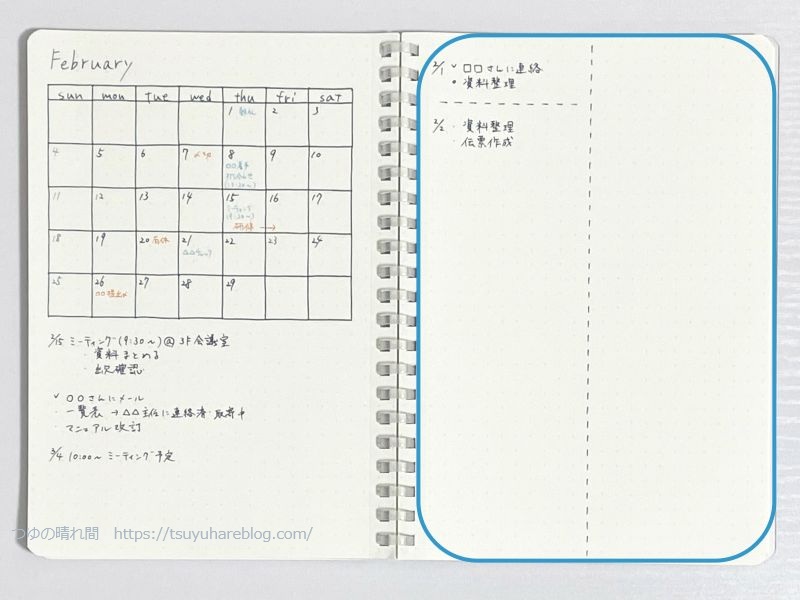 February
sun mon tue wed thu fri sat
1 2 3
4 5 6 7 〆切 8 9 10
(13:30~)
11 12 13 14 15 16 17
ミーティング
(9:30~)
研修 →
18 19 20 有休 21 22 23 24
25 26 27 28 29
○○提出〆
2/15 ミーティング(9:30~)@3F会議室
・資料まとめる
・出欠確認
✓ ○○さんにメール
・一覧表 →△△主任に連絡済・取寄中
・マニュアル改訂
3/4 10:00~ ミーティング予定
2/1 ✓ □□さんに連絡
• 資料整理
2/2 ・資料整理
・伝票作成
つゆの晴れ間 https://tsuyuhareblog.com/